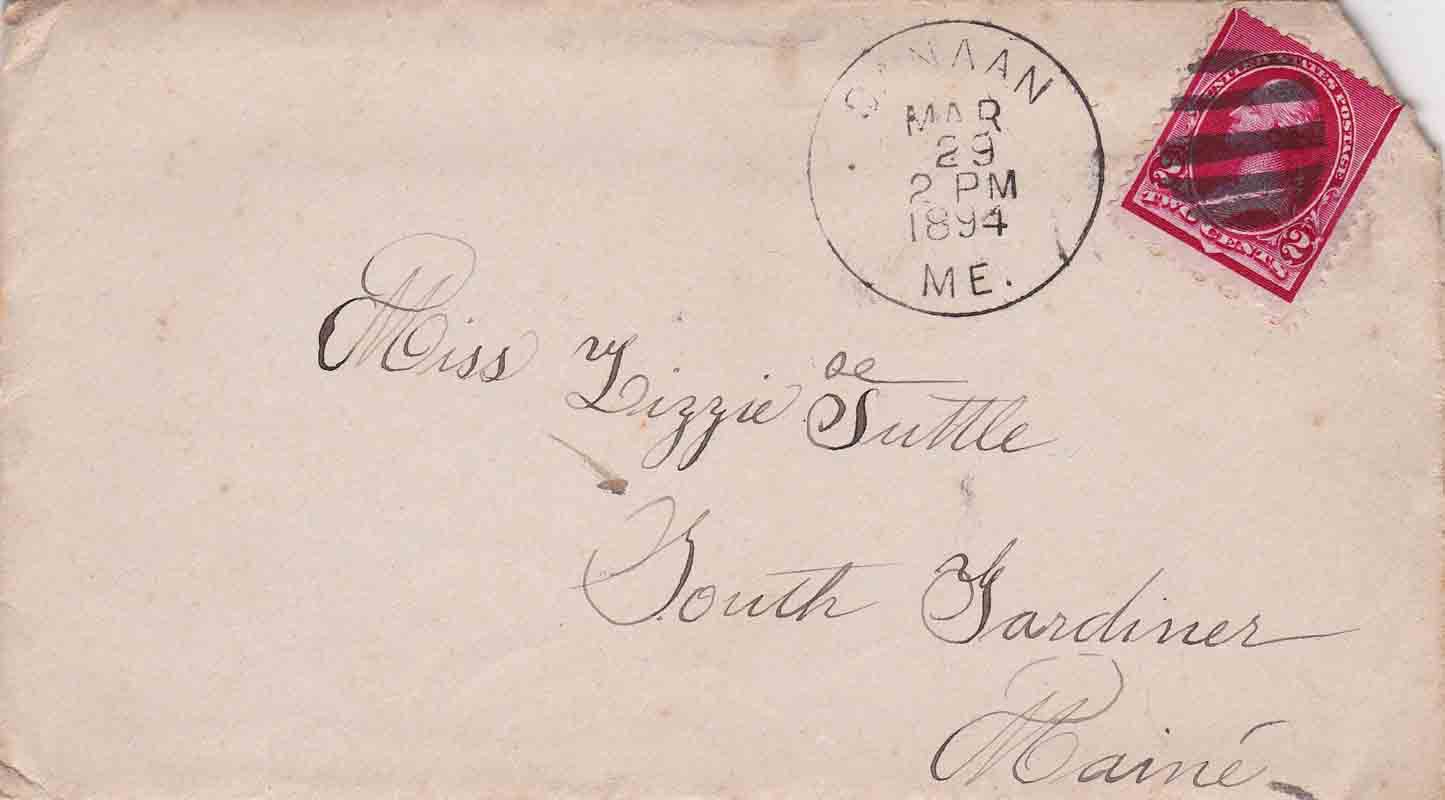 CANAAN
MAR
29
2 PM
1894
ME.
UNITED STATES POSTAGE
2 2
TWO CENTS
Miss Lizzie Tuttle
South Gardiner
Maine